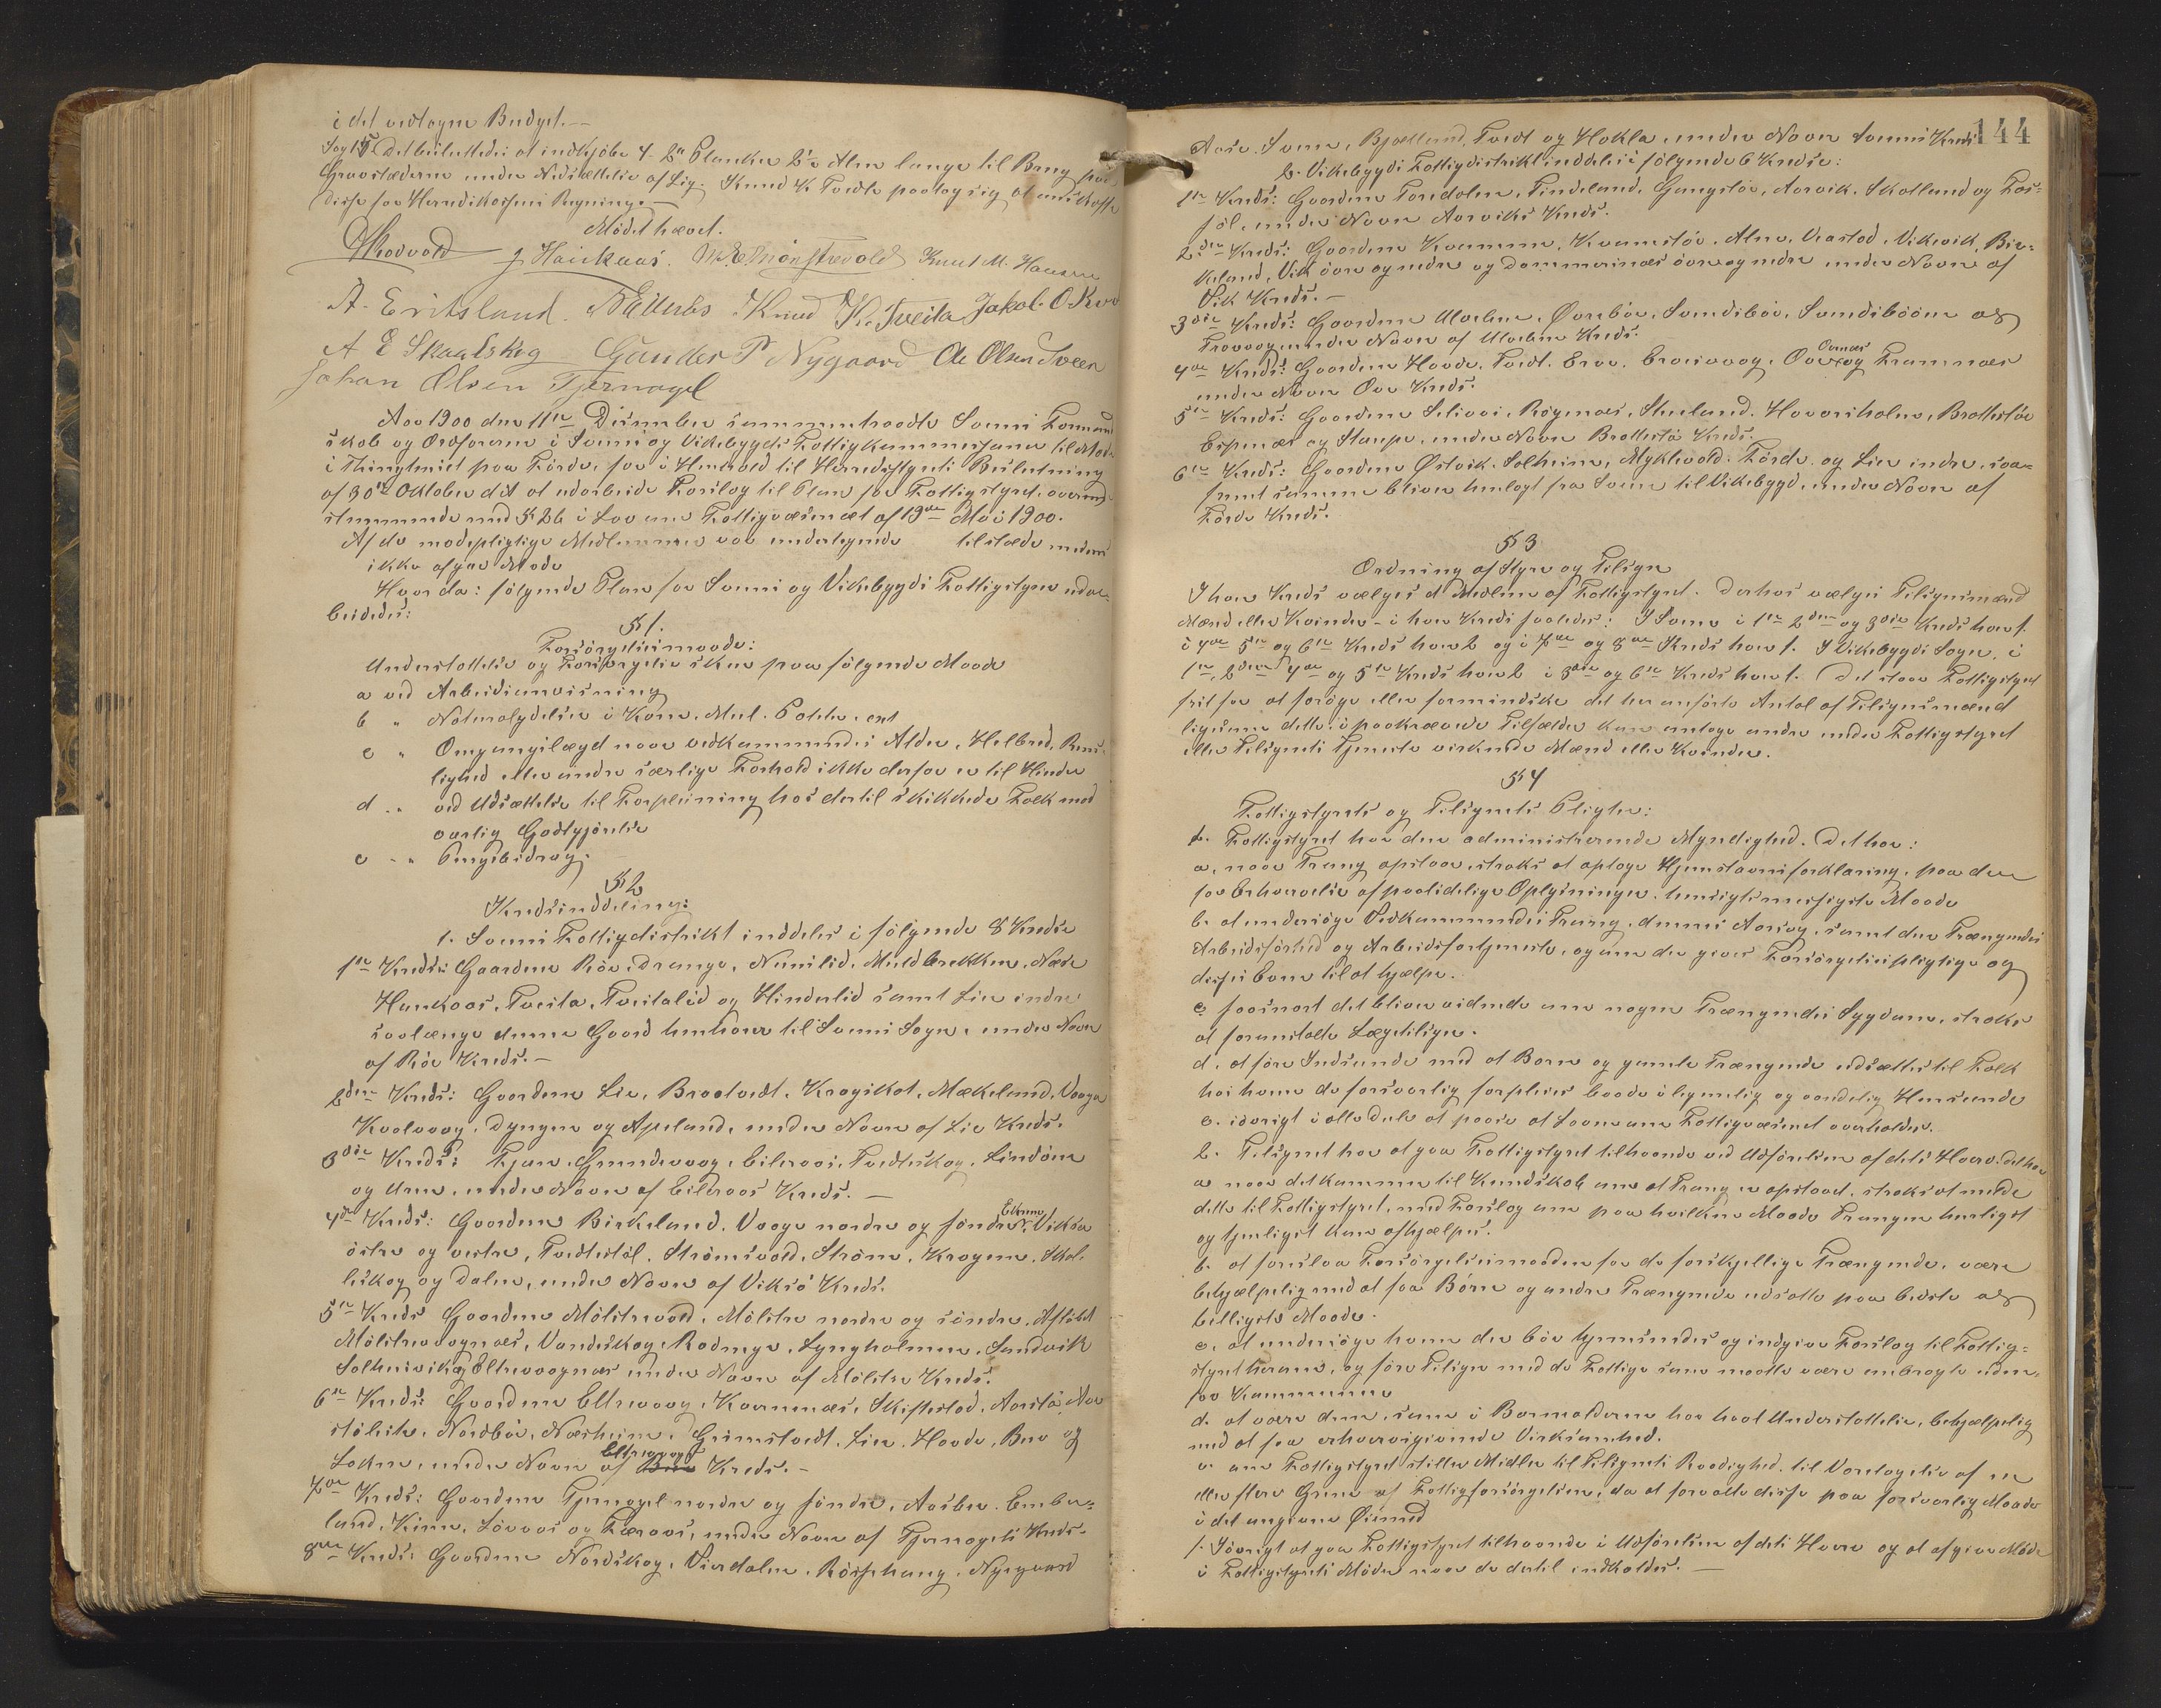 i det vedtagne Budget.
Sag 15. Det besluttedes at indkjøbe 4 2" Planker 2½ Alen lange til Brug paa
Gravstederne under Nedsættelse af Lig. Knud K. Tveita paatog sig at anskaffe
disse for Herredskassens Regning.
Mødet hævet.
D Rodvold J Haukaas. M. E. Mönstrevold Knut M. Haavik
A. Eritsland. N Eilerås Knud K. Tveita Jakob. O. Røe
A E Skaalskog Gunder P Nygaard Ole Olsen Sveen
Johan Olsen Tjernagel
Aar 1900 den 11te Desember sammentraadte Sveens Formand
skab og Ordførerne i Sveens og Vikebygds Fattigkommissioner til Møde
i Thingstuen paa Førde, for i Henhold til Herredsstyrets Beslutning
af 30te Oktober d.A. at udarbeide Forslag til Plan for Fattigstyret, overens-
stemmende med § 26 i Lov om Fattigvæsenet af 19de Mai 1900.
Af de mødepligtige Medlemmer var undertegnede tilstede medens
ikke afgav Møde
Hvorda: følgende Plan for Sveens og Vikebygds Fattigstyre udar-
beidedes:
§ 1.
Forsørgelsesmaade:
Understøttelse og Forsørgelse sker paa følgende Maade
a ved Arbeidsanvisning
b " Naturalydelser i Korn, Mel, Poteter, ect
c " Omgangslægd naar vedkommendes Alder, Helbred, Ren-
lighed eller andre særlige Forhold ikke derfor er til Hinder
d " ved Udsættelse til Forpleining hos dertil skikkede Folk mod
aarlig Godtgjørelse
e " Pengebidrag.
§ 2
Kredsinddeling:
1. Sveens Fattigdistrikt inddeles i følgende 8 Kredse
1ste Kreds: Gaardene Röe, Drange, Nunslid, Meldbrekken, Næse
Haukaas, Tveita, Tveitalid og Hinderlid samt Lien indre
saalænge denne Gaard henhører til Sveens Sogn, under Navn
af Röe Kreds.
2den Kreds: Gaardene Lie, Braatvedt, Krogskot, Mækeland, Vaage
Kvalvaag, Dyngen og Apeland, under Navn af Lie Kreds.
3die Kreds: Tjern, Grindevaag, Eileraas, Tvedteskog, Lindøen
og Ulven, under Navn af Eileraas Kreds.
4de Kreds: Gaardene Birkeland, Vaage nordre og søndre, Eknene, Viksø
østre og vestre, Tvedtestøl, Strömsvold, Ströms, Kragene, Skol-
leskog og Dalen, under Navn af Viksø Kreds.
5te Kreds Gaardene Mölstrevold, Mölstre nordre og søndre, Aslöbet
Mölstrevaagnæs, Vandeskog, Rødmyr, Lyngholmen, Sandvik
Solheimvik og Eltrevaagnæs under Navn af Mölstre Kreds.
6te Kreds: Gaardene Eltrevaag, Kvernenæs, Skiftestad, Aarstø, Aar
stöleite, Nordbø, Næsheim, Grimstvedt, Lien, Hovde, Bue og
Lokne, under Navn af Eltrevaags Kreds.
7de Kreds: Gaardene Tjernagel nordre og søndre, Aasbue, Ember-
land, Kinn, Løvaas og Færaas, under Navn af Tjernagels Kreds.
8de Kreds: Gaardene Nordskog, Vierdalen, Rösshaug, Nygaard
144
Aase, Sveen, Bjælland, Tvedt og Hokla, under Navn Sveens Kreds
2. Vikebygds Fattigdistrikt inddeles i følgende 6 Kredse:
1ste Kreds: Gaardene Tordalen, Tindeland, Gangstø, Aarvik, Skotland og Fos-
søl, under Navn Aarviks Kreds.
2den Kreds: Gaardene Kvamme, Kvamstø, Alne, Vrastad, Vikevik, Bir-
keland, Vik øvre og nedre og Dommersnæs øvre og nedre under Navn af
Vik Kreds.
3die Kreds: Gaardene Ulveln, Øvrebø, Sundsbø, Sundsbøøen og
Trovaag under Navn af Ulveln Kreds.
4de Kreds: Gaardene Hovde, Tvedt, Erve, Eroesvaag, Ove, Ovenæs og Framnæs
under Navn Ove Kreds.
5te Kreds: Gaardene Selvos, Røgenæs, Skeeland, Haavarsholm, Brattestø
Espenæs og Staupe, under Navn Brattestø Kreds.
6te Kreds: Gaardene Østvik, Solheim, Myklevold, Førde og Lien indre, saa-
fremt samme bliver henlagt fra Sveen til Vikebygd, under Navn af
Førde Kreds.
§ 3
Ordning af Styre og Tilsyn
I hver Kreds vælges et Medlem af Fattigstyret. Derhos vælges Tilsynsmænd
Mænd eller Kvinder i hver Kreds saaledes: I Sveens i 1ste 2den og 3die Kreds hver 1.
i 4de 5te og 6te Kreds hver 2 og i 7de og 8de Kreds hver 1. I Vikebygds Sogn, i
1ste, 2den 4de og 5te Kreds hver 2 i 3die og 6te Kreds hver 1. Det staar Fattigstyret
frit for at forøge eller formindske det her anførte Antal af Tilsynsmænd
ligesom dette i paakrævede Tilfælder kan antage andre under Fattigstyret
eller Tilsynets Tjeneste virkende Mænd eller Kvinder.
§ 4
Fattigstyrets og Tilsynets Pligter:
1. Fattigstyret har den administrerende Myndighed. Det har:
a, naar Trang opstaar, straks at optage Hjemstavnsforklaring, paa den
for Erhvervelse af paalidelige Oplysninger, hensigtsmæssigste Maade
b. at undersøge Vedkommendes Trang, dennes Aarsag, samt den Trængendes
Arbeidsførhed og Arbeidsfortjeneste, og om der gives Forsørgelsespligtige og
disses Evne til at hjælpe.
c saasnart det bliver vidende om nogen Trængendes Sygdom, straks
at foranstalte Lægetilsyn.
d. at føre Indseende med at Børn og gamle Trængende udsættes til Folk
hos hvem de forsvarlig forpleies baade i legemelig og aandelig Henseende
e. iøvrigt i alle Dele at paase at Loven om Fattigvæsenet overholdes.
2. Tilsynet har at gaa Fattigstyret tilhaande ved Udførelsen af dets Hverv. Det har
a naar det kommer til Kundskab om at Trang er opstaaet, straks at melde
dette til Fattigstyret, med Forslag om paa hvilken Maade Trangen heldigst
og tjenligst kan afhjælpes.
b. at foreslaa Forsørgelsesmaaden for de forskjellige Trængende, være
behjælpelig med at faa Børn og andre Trængende udsatte paa bedste og
billigste Maade.
c. at undersøge hvem der bør hjemsendes og indgive Forslag til Fattig-
styret herom, og føre Tilsyn med de Fattige som maatte være anbragte uden-
for Kommunen
d. at være dem, som i Barnealderen har havt Understøttelse, behjælpelig
med at faa erhvervgivende Virksomhed.
e. om Fattigstyret stiller Midler til Tilsynets Raadighed til Varetagelse af en
eller flere Grene af Fattigforsørgelsen, da at forvalte disse paa forsvarlig Maade
i det angivne Øiemed
f. Iøvrigt at gaa Fattigstyret tilhaande i Udførelsen af dets Hverv og at afgive Møde
i Fattigstyrets Møder naar de dertil indkaldes.